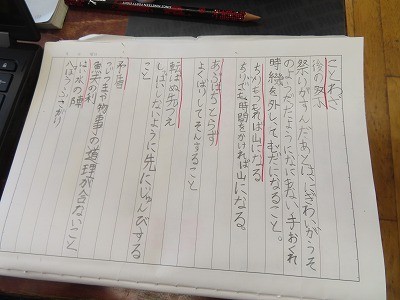 ことわざ
後の祭り
祭りがすんだあとは、にぎわいがうそ
のようだ。どのようになにもない手おくれ
時機を外して、むだになること。
ちりもつもれば山になる
ちりでも時間をかければ山になる。
あぶはちとらず
よくばりしてそんすること
転ばぬ先のつえ
しっぱいしないように先にじゅんびする
こと
矛盾
つじつまや物事の道理が合わないこと
漁夫の利
はい水の陣